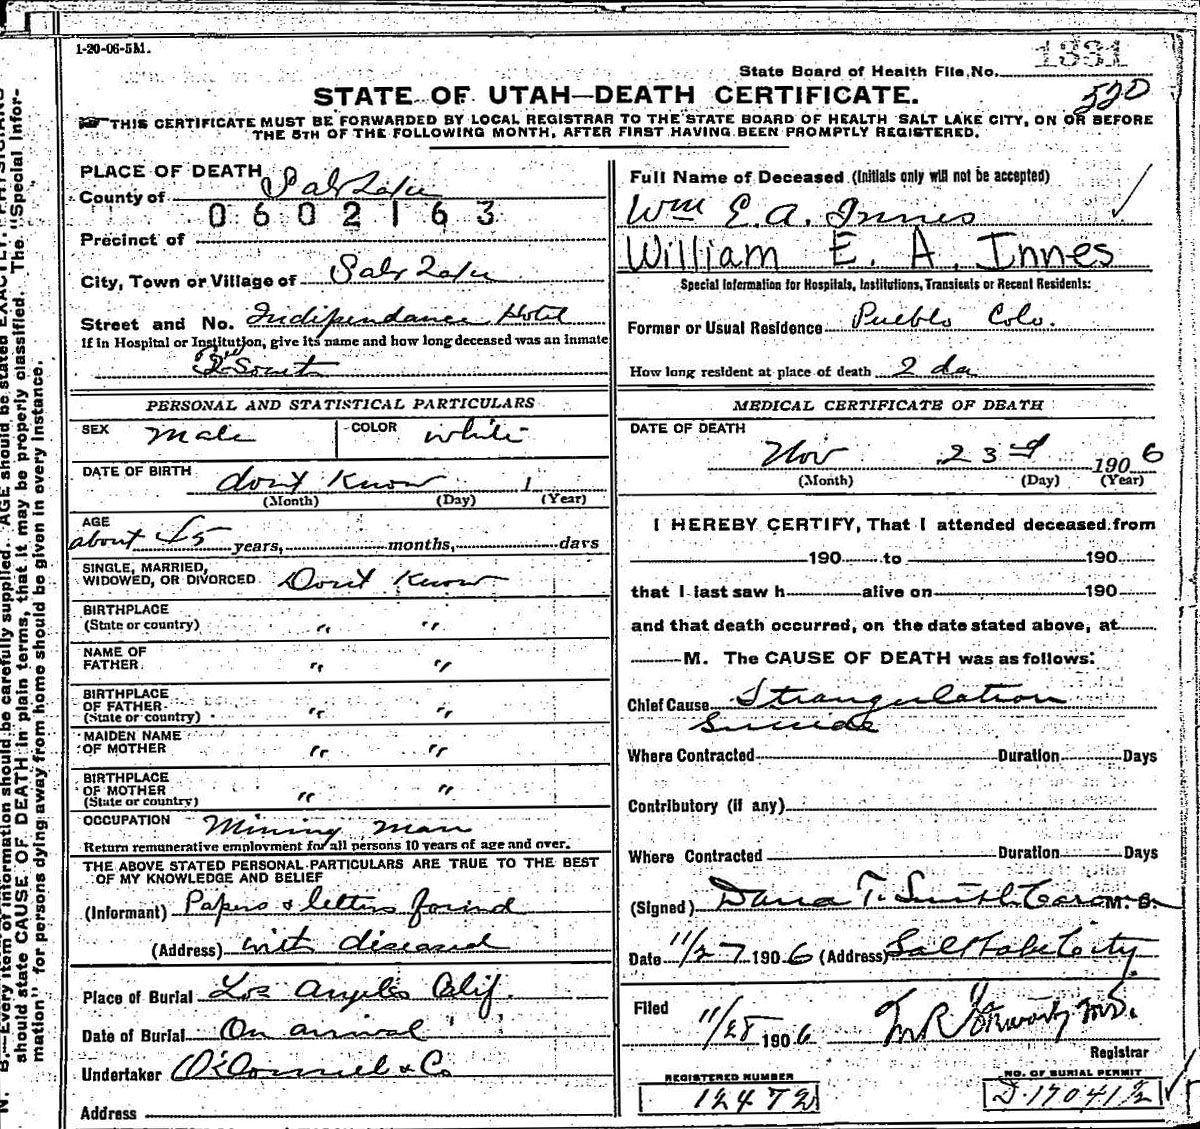 1-20-06-5M.
1331
State Board of Health File No.
520
STATE OF UTAH—DEATH CERTIFICATE.
THIS CERTIFICATE MUST BE FORWARDED BY LOCAL REGISTRAR TO THE STATE BOARD OF HEALTH SALT LAKE CITY, ON OR BEFORE
THE 5TH OF THE FOLLOWING MONTH, AFTER FIRST HAVING BEEN PROMPTLY REGISTERED.
PLACE OF DEATH
County of Salt Lake
0602163
Precinct of
City, Town or Village of Salt Lake
Street and No. Indipendance Hotel
If in Hospital or Institution, give its name and how long deceased was an inmate
PERSONAL AND STATISTICAL PARTICULARS
SEX Male COLOR white
DATE OF BIRTH dont Know 1
(Month) (Day) (Year)
AGE
about 45 years, months, days
SINGLE, MARRIED,
WIDOWED, OR DIVORCED Dont Know
BIRTHPLACE
(State or country) " "
NAME OF
FATHER " "
BIRTHPLACE
OF FATHER
(State or country) " "
MAIDEN NAME
OF MOTHER " "
BIRTHPLACE
OF MOTHER
(State or country) " "
OCCUPATION Mining man
Return remunerative employment for all persons 10 years of age and over.
THE ABOVE STATED PERSONAL PARTICULARS ARE TRUE TO THE BEST
OF MY KNOWLEDGE AND BELIEF
(Informant) Papers & letters found
(Address) with diseased
Place of Burial Los Angeles Calif.
Date of Burial On arrival
Undertaker O'Donnel & Co
Address
Full Name of Deceased (Initials only will not be accepted)
Wm E. A. Innes
William E. A. Innes
Special Information for Hospitals, Institutions, Transients or Recent Residents:
Former or Usual Residence Pueblo Colo.
How long resident at place of death 2 da
MEDICAL CERTIFICATE OF DEATH
DATE OF DEATH
Nov 23rd 1906
(Month) (Day) (Year)
I HEREBY CERTIFY, That I attended deceased from
190 to 190
that I last saw h alive on 190
and that death occurred, on the date stated above, at
M. The CAUSE OF DEATH was as follows:
Chief Cause Strangulation
Suicide
Where Contracted Duration Days
Contributory (if any)
Where Contracted Duration Days
(Signed) Dana T. Smith M. D.
Date 11/27 1906 (Address) Salt Lake City
Filed
11/28 1906
Registrar
REGISTERED NUMBER
12472
NO. OF BURIAL PERMIT
D.17041½
N. B.—Every item of information should be carefully supplied. AGE should be stated EXACTLY. PHYSICIANS
should state CAUSE OF DEATH in plain terms, that it may be properly classified. The "Special Infor-
mation" for persons dying away from home should be given in every instance.